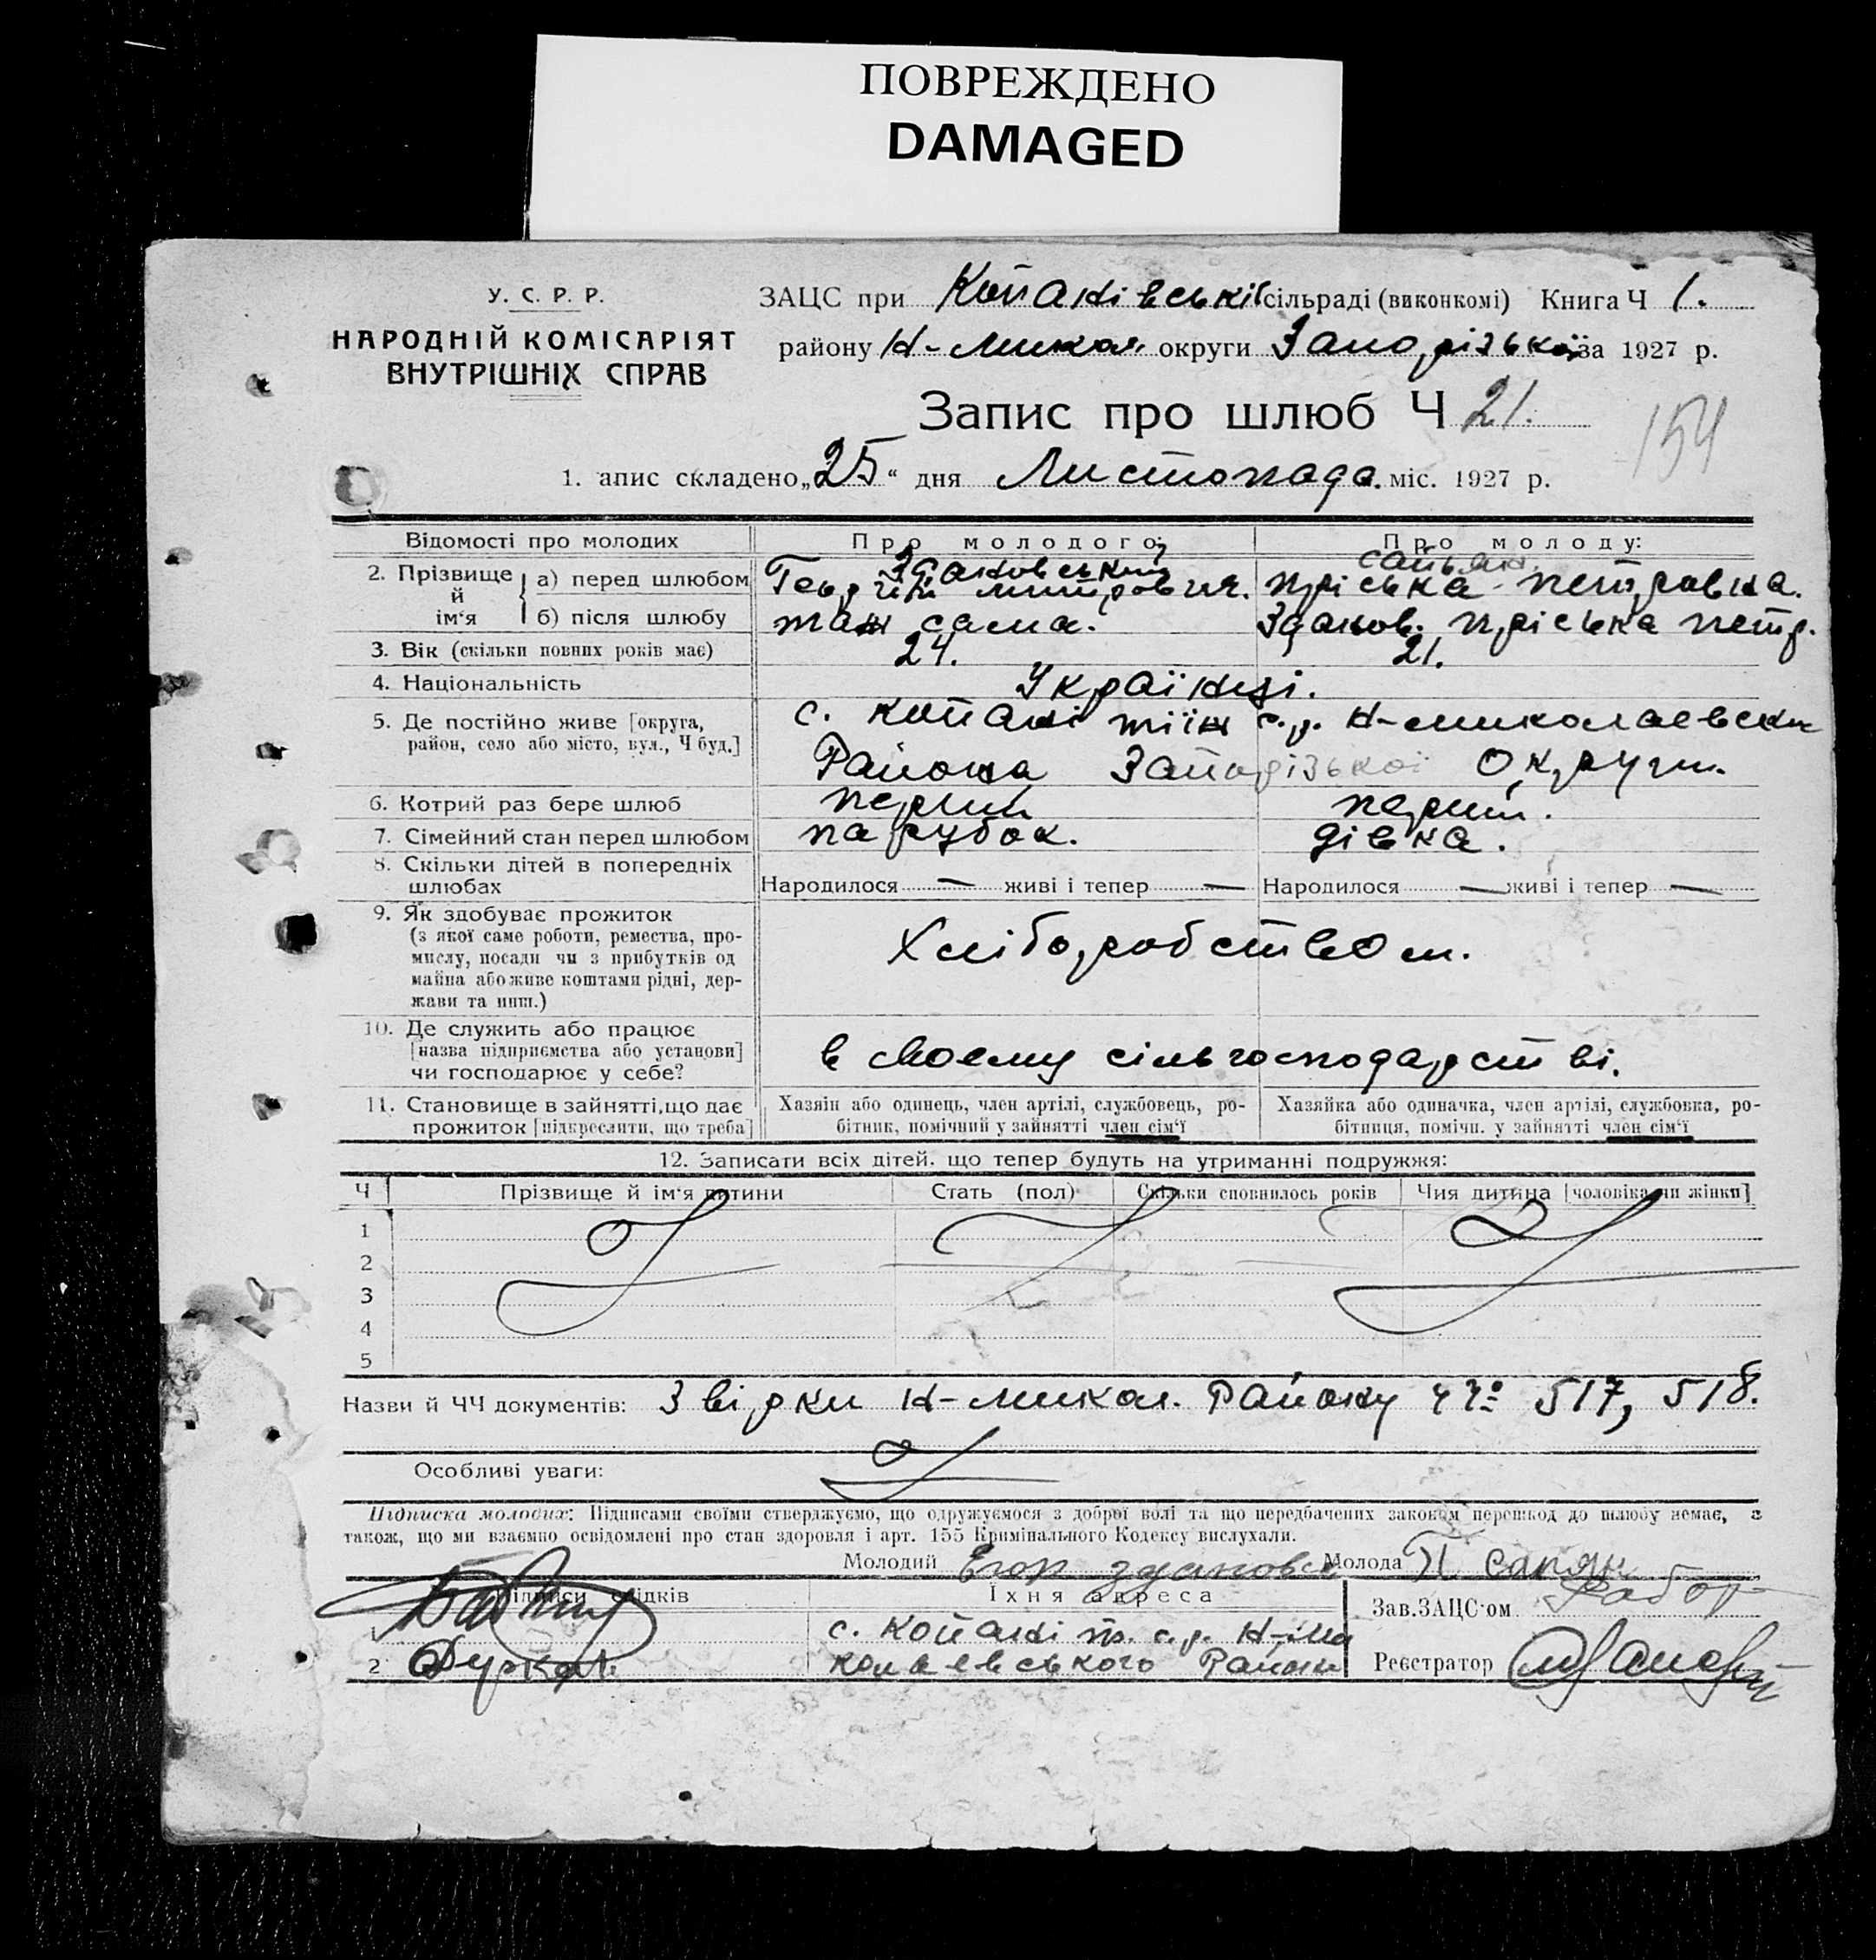 ПОВРЕЖДЕНО
DAMAGED
У. С. Р. Р.
НАРОДНІЙ КОМІСАРІЯТ
ВНУТРІШНІХ СПРАВ
ЗАЦС при Копанівській сільраді (виконкомі) Книга Ч 1.
району Н-Микол. округи Запорізької за 1927 р.
Запис про шлюб Ч 21.
154
1. апис складено „25“ дня Листопада міс. 1927 р.
Відомості про молодих Про молодого: Про молоду:
2. Прізвище й ім‘я
а) перед шлюбом Здановський Георгій Митрович. Сапьян Пріська Петровна.
б) після шлюбу таж сама. Зданов. Пріська Петр.
3. Вік (скільки повних років має) 24. 21.
4. Національність Українці.
5. Де постійно живе [округа, с. Копані тіїж с.р. Н-миколаевськ
район, село або місто, вул., Ч буд.] Района Запорізької Округи.
6. Котрий раз бере шлюб перший перший.
7. Сімейний стан перед шлюбом парубок. дівка.
8. Скільки дітей в попередніх
шлюбах Народилося — живі і тепер — Народилося — живі і тепер —
9. Як здобуває прожиток
(з якої саме роботи, ремества, про-
мислу, посади чи з прибутків од
майна або живе коштами рідні, дер-
жави та инш.)
Хліборобством.
10. Де служить або працює
[назва підприємства або установи]
чи господарює у себе?
в своему сільгосподарстві.
11. Становище в зайнятті, що дає
прожиток [підкреслити, що треба]
Хазяін або одинець, член артілі, службовець, ро-
бітник, помічний у зайнятті член сім‘ї
Хазяйка або одиначка, член артілі, службовка, ро-
бітниця, помічн. у зайнятті член сім‘ї
12. Записати всіх дітей. що тепер будуть на утриманні подружжя:
Ч Прізвище й ім‘я дитини Стать (пол) Скільки сповнилось років Чия дитина [чоловіка чи жінки]
1
2
3
4
5
Назви й ЧЧ документів: Звірки Н-Микол. Району 517, 518.
Особливі уваги:
Підписка молодих: Підписами своїми стверджуємо, що одружуємося з доброї волі та що передбачених законом перешкод до шлюбу немає, а
також, що ми взаємно освідомлені про стан здоровля і арт. 155 Кримінального Кодексу вислухали.
Молодий Егор Здановск Молода П Сапян
Підписи свідків Їхня адреса Зав. ЗАЦС‘ом
1 с. Копані т. с.р. Н-Ми
2 колаевського Району Реєстратор